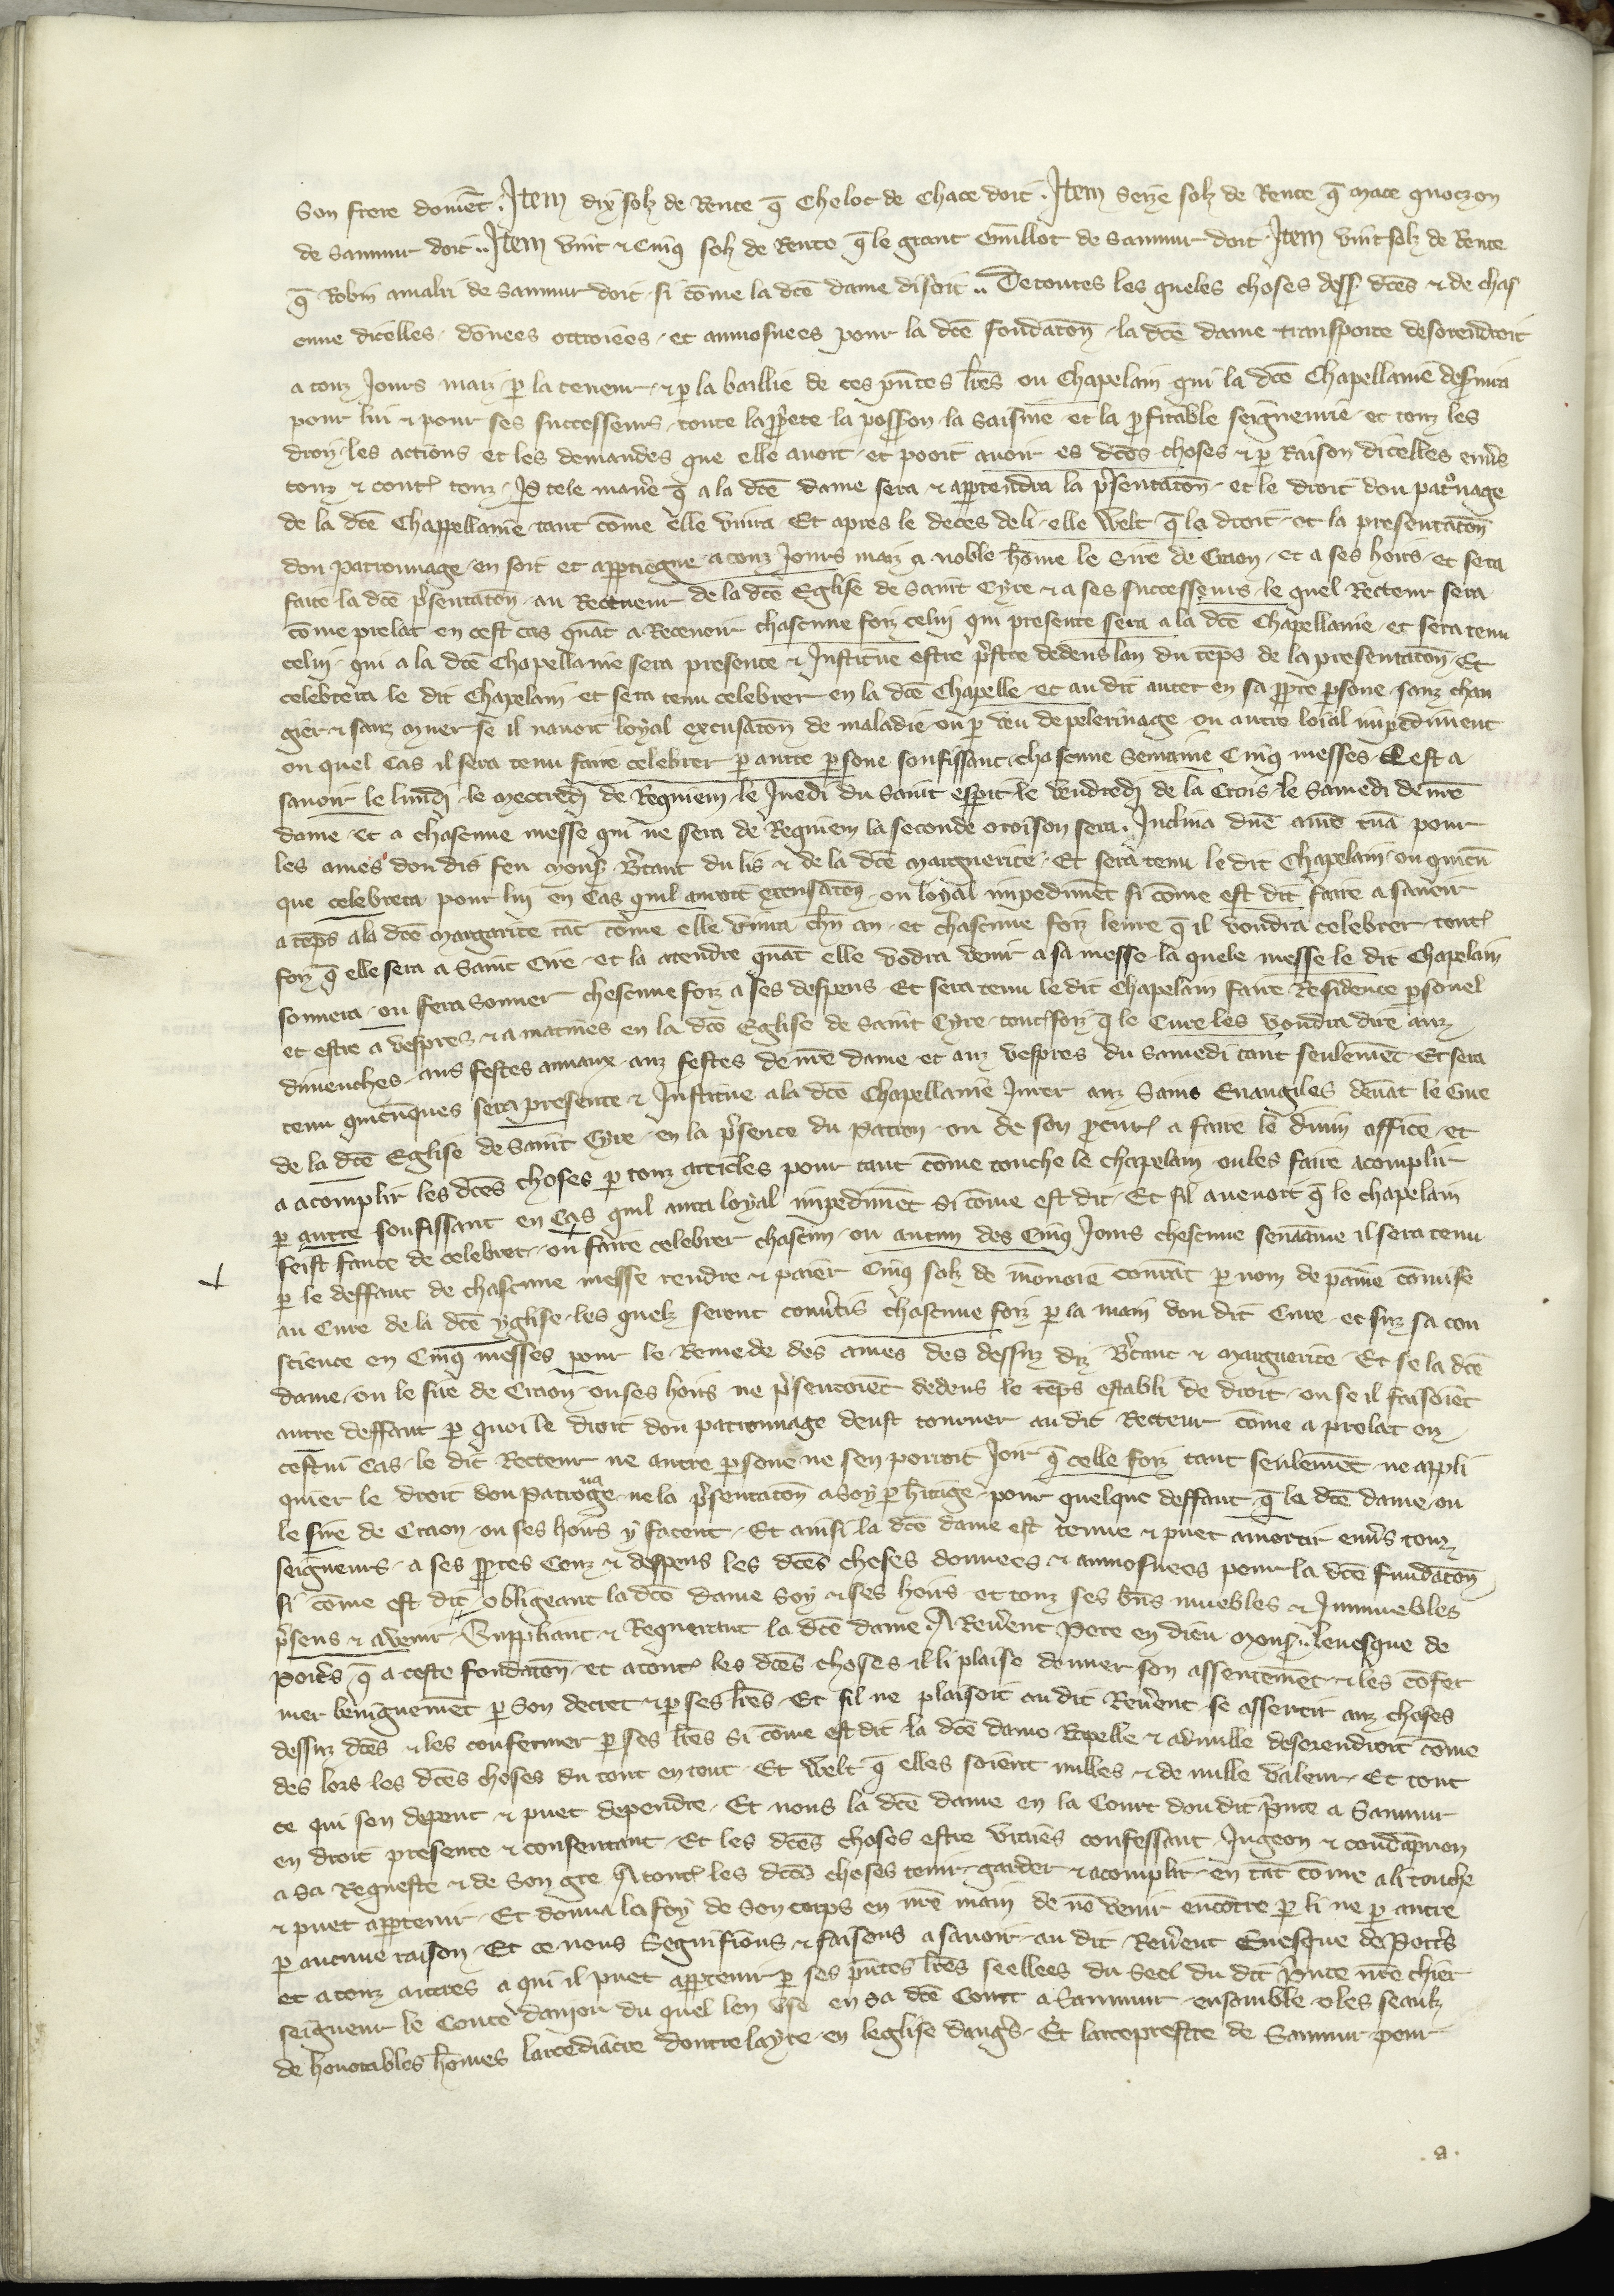 Son frere domēt. Item dix solz de Rente q̄ Chelot de Chace doit. Item Seize solz de Rente q̄ Mace quoczon
de Saumur doit.. Item vint ⁊ Cinq solz de Rente q̄ le grant Guillot de Saumur doit. Item vint solz de Rente
q̄ Robin amalri de Saumur doit si cōme la dcē dame disoit .. De toutes les queles choses dess dcēs ⁊ de chas
cune dicelles . dōnees ottroiees . et aumosnees pour la dcē fondatōn . la dcē dame transporte desorendroit
a touz Jours maiz p la teneur . ⁊ p la baillie de ces p̄ntes lr̄es ou Chapelain qui la dcē Chapellanie desuira
pour lui ⁊ pour ses successeurs . toute la pp̄ete la possion la Saisine et la profitable seigneurie . et touz les
droiz . les actions et les demandes que elle auoit . et pooit auoir es dcēs choses ⁊ p Raison dicelles enūs
touz ⁊ contr̄ touz . Jd tele manē q̄ a la dcē dame sera ⁊ appartendra la p̄sentatōn . et le droit dou patronage
de la dcē Chappellanie . tant cōme elle viura Et apres le deces de li . elle Welt q̄ le droit . et la presentatōn
dou patronnage . en soit et appartiegne a touz Jours maiz a noble hōme le Sire de Craon . et a ses hoirs . et sera
faite la dcē p̄sentatōn . au Recteeur de la dcē Eglise de Saint Cyre ⁊ a ses successeurs . le quel Recteur sera
cōme prelat en cest cas quāt a Receuoir chascune foiz celui qui presente sera a la dcē Chapellanie . et sera tenu
celui . qui a la dcē Chapellanie sera presente ⁊ Institue estre p̄stre dedens lan du tēps de la presentatōn . Et
celebrera le dit Chapelain . et sera tenu celebrer en la dcē Chapelle . et au dit auter en sa pp̄re psone . sanz chan
gier ⁊ sanz muer se il nauoit loyal excusatōn de maladie ou p veu de pelerinage ou autre loial impediment
ou quel Cas il sera tenu faire celebrer p autre psone souffissant . chascune Semaine Cinq messes . Cest a
sauoir le lundi . le mecredi de Requiem . le Juedi du Saint esperit le vendredi de la Crois . le Samedi de nrē
dame . et a chascune messe qui ne sera de Requiem la seconde oroison sera . Inclina dnē aurē tuā pour
les ames dou dit feu mons B̄tant du lis ⁊ de la dcē Marguerite . Et sera tenu le dit Chapelain ou quicū
que celebrera pour lui en Cas quil auroit excusatōn ou loyal impedimēt si cōme est dit faire a sauoir
a tēps a la dcē Margarite tāt cōme elle viura chūn an . et chascune foiz leure q̄ il voudra celebrer tout̄
foiz q̄ elle sera a Saint Cire . et la atendre quāt elle vodra venir a sa messe . la quele messe . le dit Chapelain
sonnera . ou fera Sonner chescune foiz a ses despens . Et sera tenu le dit Chapelain faire Residence psonel̄
et estre a vespres ⁊ a matines en la dcē Eglise de Saint Cyre . tout̄ foiz q̄ le Cure les voudra dire auz
dimenches . aus festes annaux . auz festes de nrē dame . et auz vespres du Samedi tant seulemēt . Et sera
tenu quicūques sera presente ⁊ Institue a la dcē Chapellanie Jurer auz Sains Euangiles deuāt le Cure
de la dcē Eglise de Saint Cyre . en la p̄sence du patron . ou de son p̄cur̄ a faire le diuin office . et
a acomplir les dcēs choses p touz articles pour tant cōme touche le chapelain ou les faire acomplir
p autre souffissant en Cas quil aura loyal impedimēt Si cōme est dit . Et sil auenoit q̄ le chapelain
feist faute de celebrer . ou faire celebrer chascun . ou aucun des Cinq Jours chescune semaine il sera tenu
p le deffaut de chascune messe rendre ⁊ paier Cinq solz de mōnoie courāt p nom de paine cōmise
au Cure de la dcē yglise . les quelz seront conūtis chascune foiz p la main dou dit Cure . et suz sa con
science en Cinq messes pour le Remede des ames des dessuz diz B̄tant ⁊ Marguerite . Et se la dcē
dame . ou le sire de Craon . ou ses hoirs ne p̄sentoiēt dedens le tēps establi de droit . ou se il faisoiēt
autre deffaut p quoi le droit dou patronnage deust tourner au dit Recteur cōme a prelat en
cestui Cas . le dit Recteur ne autre psone ne sen porroit Joir q̄ celle foiz tant seulemēt . ne appli
quier le droit dou patronage . ne la p̄sentatōn a soy p hītaige . pour quelque deffaut q̄ la dcē dame . ou
le sire de Craon . ou ses hoirs y facent . Et ainsi la dcē dame est tenue ⁊ puet amortir enūs touz
seigneurs . a ses pp̄res Couz ⁊ despens les dcēs choses donnees ⁊ aumosnees pour la dcē fundatōn
si cōme est dit obligeant la dcē dame Soy ⁊ ses hoirs . et touz ses bn̄s muebles ⁊ Jnmuebles
p̄sens ⁊ auenir . Suppliant ⁊ Requerant la dcē dame . A Reuēent Pere en dieu mons .. leuesque de
poit̄s q̄ a ceste fondatōn . et a tout̄ les dcēs choses . il li plaise donner son assentemēt . ⁊ les cōfer
mer benignemēt p Son decret ⁊ p ses lr̄es . Et sil ne plaisoit au dit Reuēent . se assentir auz choses
dessuz dcēs ⁊ les confermer p ses lr̄es Si cōme est dit . la dcē dame Rapelle ⁊ adnulle desorendroit cōme
des lors les dcēs choses du tout en tout . Et Welt q̄ elles soient nulles . ⁊ de nulle valeur . Et tout
ce qui sen depent ⁊ puet dependre . Et nous la dcē dame en la Court dou dit p̄nce a Saumur
en droit presente ⁊ consentant . Et les dcēs choses estre vraies confessant . Jugeon ⁊ condāpnon
a sa Requeste ⁊ de Son gre A tout̄ les dcēs choses tenir . garder ⁊ acomplir . en tāt cōme a li touche
⁊ puet appartenir . Et donna la foy de Son corps en nrē main de nō venir encōtre p li ne p autre
p aucune raison . Et ce nous Segnifions ⁊ faisons a sauoir . au dit Reuēent Euesque de Poit̄s
et a touz autres a qui il puet appartenir p ses p̄ntes lr̄es seellees du Seel du dit P̄nce nr̄e chier
seigneur le Conte daniou du quel len vse en sa dcē Court a Saumur . ensamble o les seaulz
de honorables hōmes larcediacre doutre layre . en leglise danḡs . Et larceprestre de Saumur . pour
a.